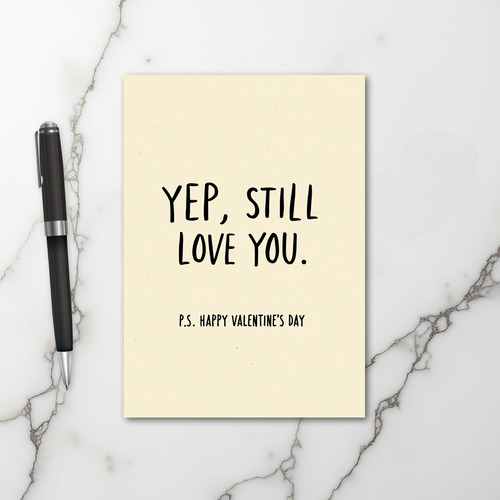 YEP, STILL
LOVE YOU.
P.S. HAPPY VALENTINE'S DAY